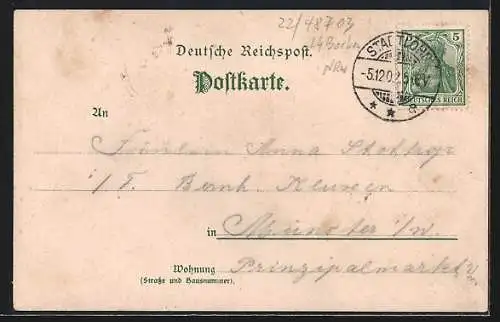 22/48703
Deutsche Reichspost.
Postkarte.
5
STADTLOHN
-5.12.02
DEUTSCHES REICH
An
Fräulein Anna
i/F. Bernh.
in Münster i/W.
Wohnung Prinzipalmarkt
(Straße und Hausnummer).